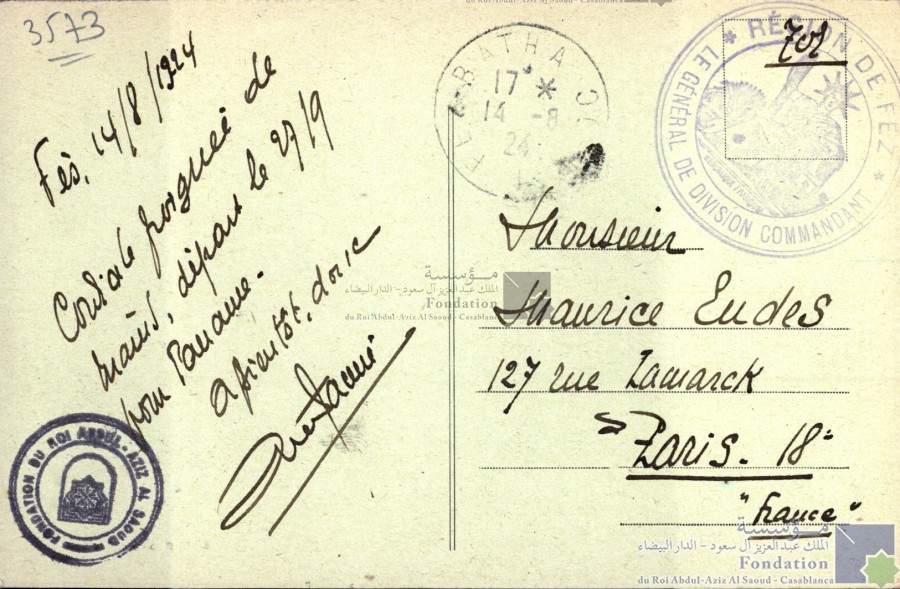 du Roi Abdul-Aziz Al Saoud - Casablanca
3573
Fès, 14/8/1924
Cordiale poignée de
mains, départ le 27/9
pour Paname.
à bientôt, donc
FEZ-BATHA
17 *
14 -8
24
701
* RÉGION DE FEZ *
LE GÉNÉRAL DE DIVISION COMMANDANT
Monsieur
Maurice Eudes
127 rue Lamarck
Paris. 18e
"France"
مؤسسة
الملك عبدالعزيز آل سعود - الدار البيضاء
Fondation
du Roi Abdul-Aziz Al Saoud - Casablanca
FONDATION DU ROI ABDUL-AZIZ AL SAOUD
مؤسسة
الملك عبدالعزيز آل سعود - الدار البيضاء
Fondation
du Roi Abdul-Aziz Al Saoud - Casablanca